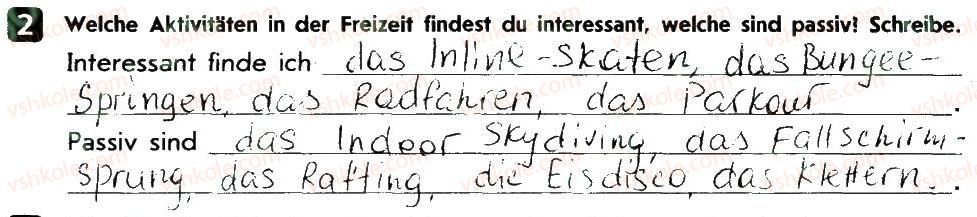 2 Welche Aktivitäten in der Freizeit findest du interessant, welche sind passiv? Schreibe.
Interessant finde ich das Inline-Skaten, das Bungee-
Springen, das Radfahren, das Parkour.
Passiv sind das Indoor Skydiving, das Fallschirm-
sprung, das Rafting, die Eisdisco, das Klettern.